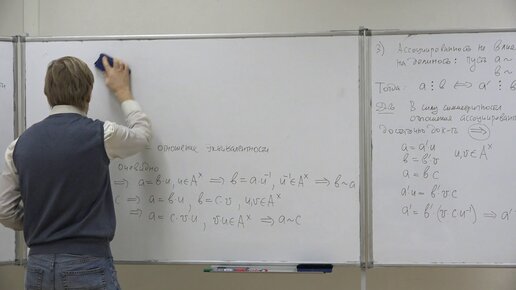 = отношение эквивалентности
очевидно
⇒ a = b·u, u∈Aˣ ⇒ b = a·u⁻¹, u⁻¹∈Aˣ ⇒ b∼a
⇒ a = b·u, b = c·v, u,v∈Aˣ
⇒ a = c·v·u, v·u∈Aˣ ⇒ a∼c
3) Ассоциированность не влия
на делимость: пусть a∼
b∼
Тогда: a⋮b ⇔ a'⋮b
В силу симметричности
отношения ассоциированн
достаточно док-ть ⇒
a = a'u
b = b'v
u,v∈Aˣ
a = bc
a'u = b'vc
a' = b'(vcu⁻¹) ⇒ a'